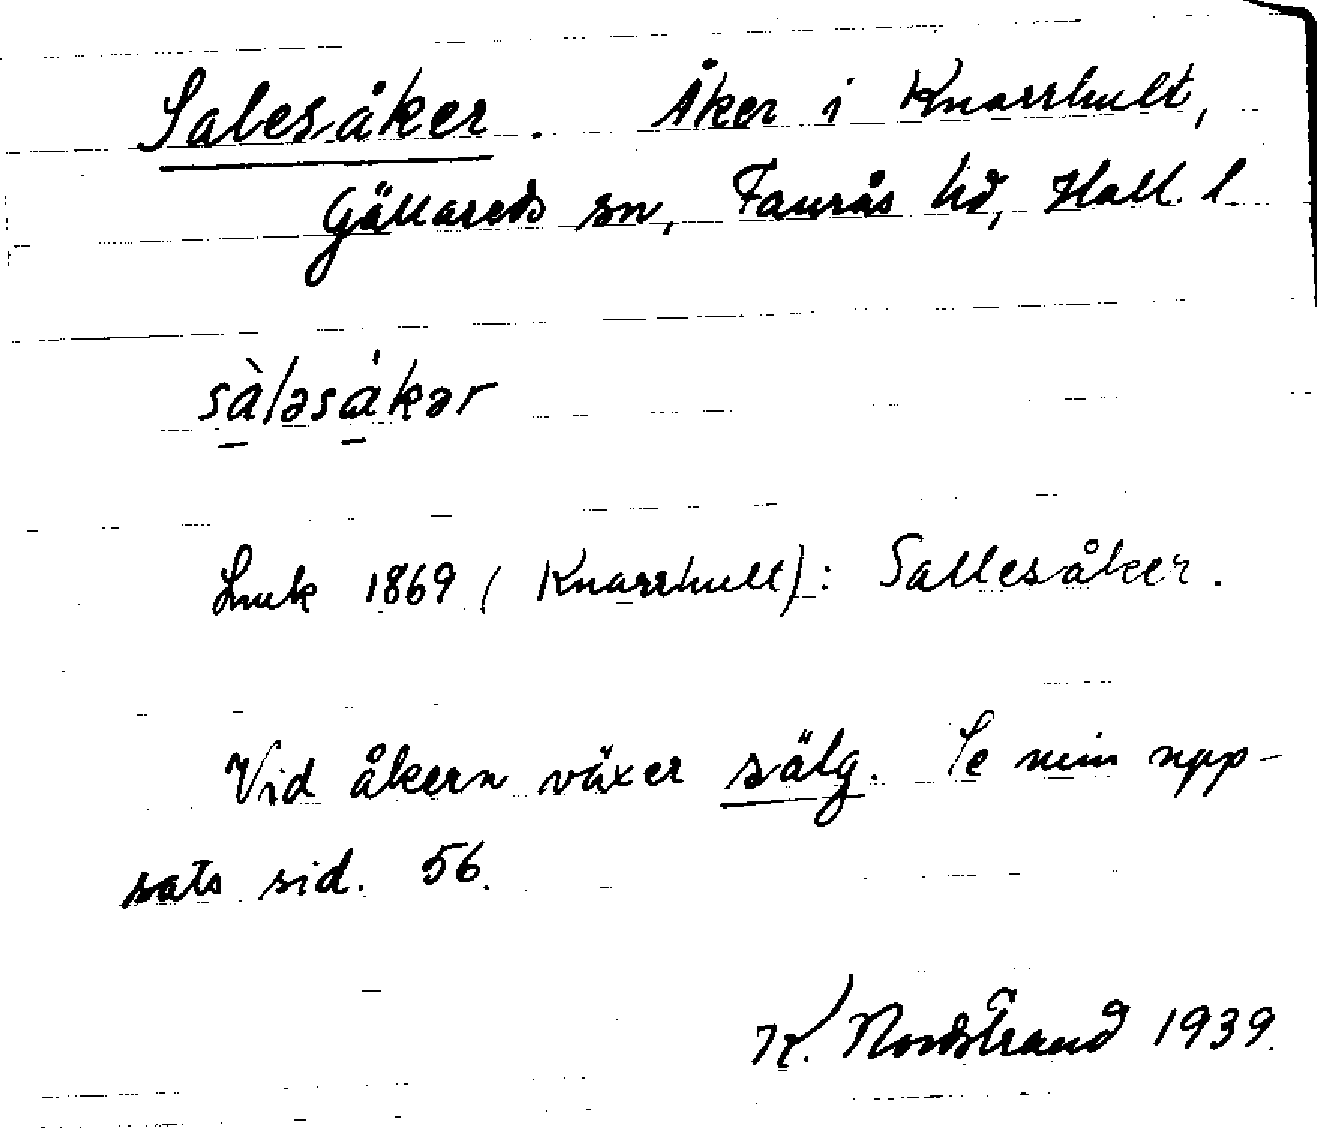 Salesåker. Åker i Knarrhult,
Gällareds sn, Faurås hd, Hall. l.
sàləsåkər
Lmk 1869 (Knarrhult): Sallesåker.
Vid åkern växer sälg. Se min upp-
sats sid. 56.
K. Nordstrand 1939.